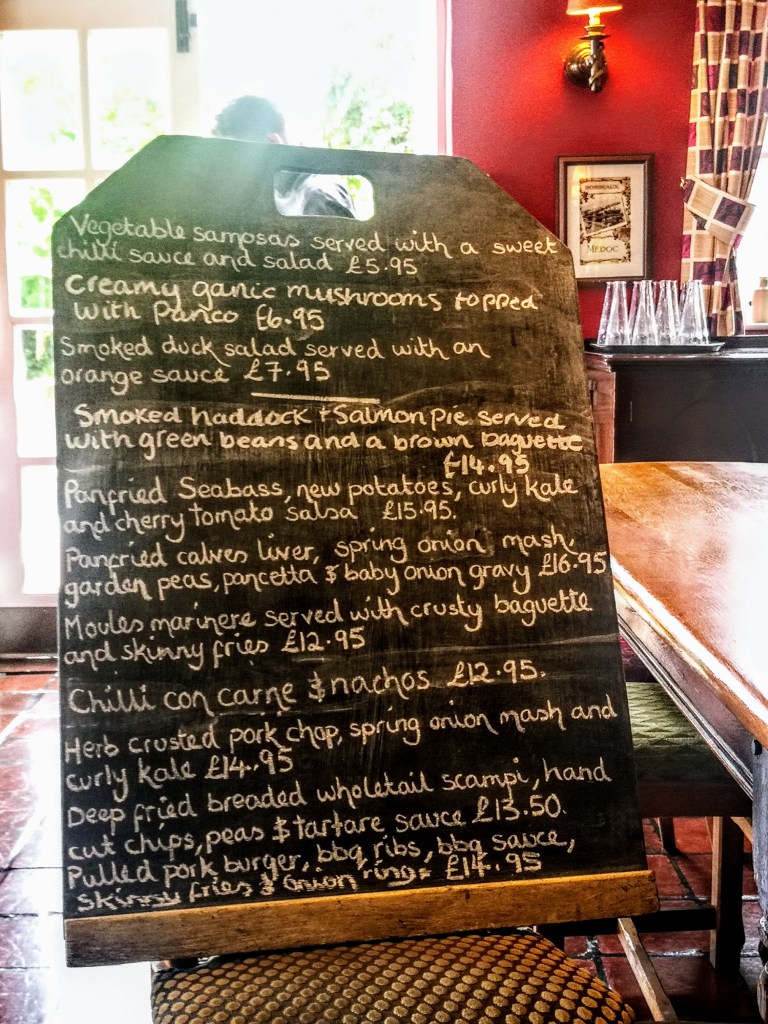 Vegetable samosas served with a sweet
chilli sauce and salad £5.95
Creamy garlic mushrooms topped
with Panco £6.95
Smoked duck salad served with an
orange sauce £7.95
Smoked haddock + Salmon Pie served
with green beans and a brown baguette
£14.95
Panfried Seabass, new potatoes, curly kale
and cherry tomato salsa £15.95.
Panfried calves liver, spring onion mash,
garden peas, pancetta & baby onion gravy £16.95
Moules marinere served with crusty baguette
and skinny fries £12.95
Chilli con carne & nachos £12.95.
Herb crusted pork chop, spring onion mash and
curly kale £14.95
Deep fried breaded wholetail scampi, hand
cut chips, peas & tartare sauce £13.50.
Pulled pork burger, bbq ribs, bbq sauce,
skinny fries & onion rings £14.95
BORDEAUX
MEDOC